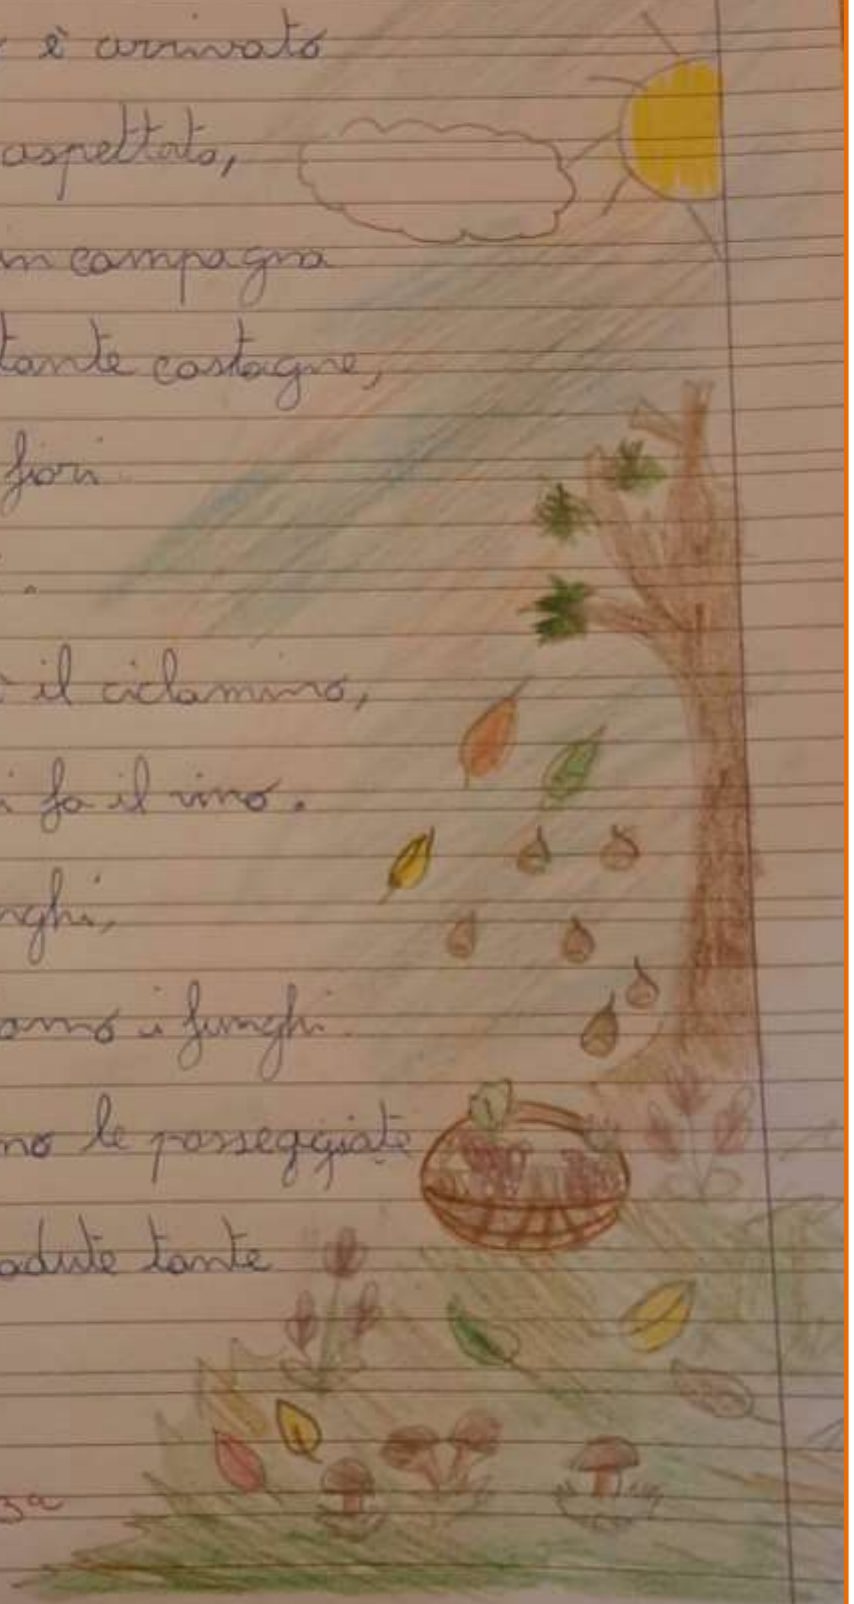 è arrivato
aspettato,
in campagna
tante castagne,
fiori
.
il ciclamino,
i fa il vino.
nghi,
amo i funghi.
no le passeggiate
adute tante
3a